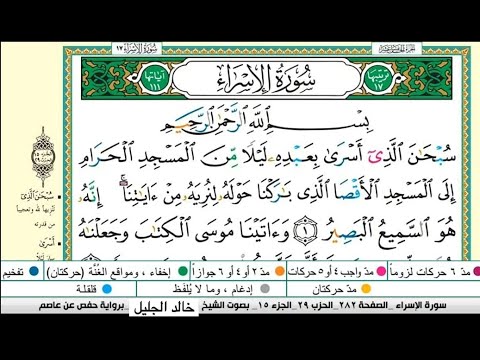 سُورَةُ الإِسْرَاءِ ١٧
سُورَةُ الإِسْرَاءِ
ترتيبها ١٧
آياتها ١١١
بِسْمِ ٱللَّهِ ٱلرَّحْمَٰنِ ٱلرَّحِيمِ
سُبْحَٰنَ ٱلَّذِىٓ أَسْرَىٰ بِعَبْدِهِۦ لَيْلًا مِّنَ ٱلْمَسْجِدِ ٱلْحَرَامِ
إِلَى ٱلْمَسْجِدِ ٱلْأَقْصَا ٱلَّذِى بَٰرَكْنَا حَوْلَهُۥ لِنُرِيَهُۥ مِنْ ءَايَٰتِنَآ ۚ إِنَّهُۥ
هُوَ ٱلسَّمِيعُ ٱلْبَصِيرُ ١ وَءَاتَيْنَا مُوسَى ٱلْكِتَٰبَ وَجَعَلْنَٰهُ
سُبْحَانَ الَّذِي
تنزيهاً لله وتعجيباً
من قدرته
أَسْرَى
مدّ ٦ حركات لزوماً
مدّ واجب ٤ أو ٥ حركات
مدّ ٢ أو ٤ أو ٦ جوازاً
إخفاء ، ومواقع الغُنَّة (حركتان)
تفخيم
مدّ حركتان
إدغام ، وما لا يُلفَظ
قلقلة
سورة الإسراء _ الصفحة ٢٨٢ _ الحزب ٢٩ _ الجزء ١٥ _ بصوت الشيخ خالد الجليل برواية حفص عن عاصم